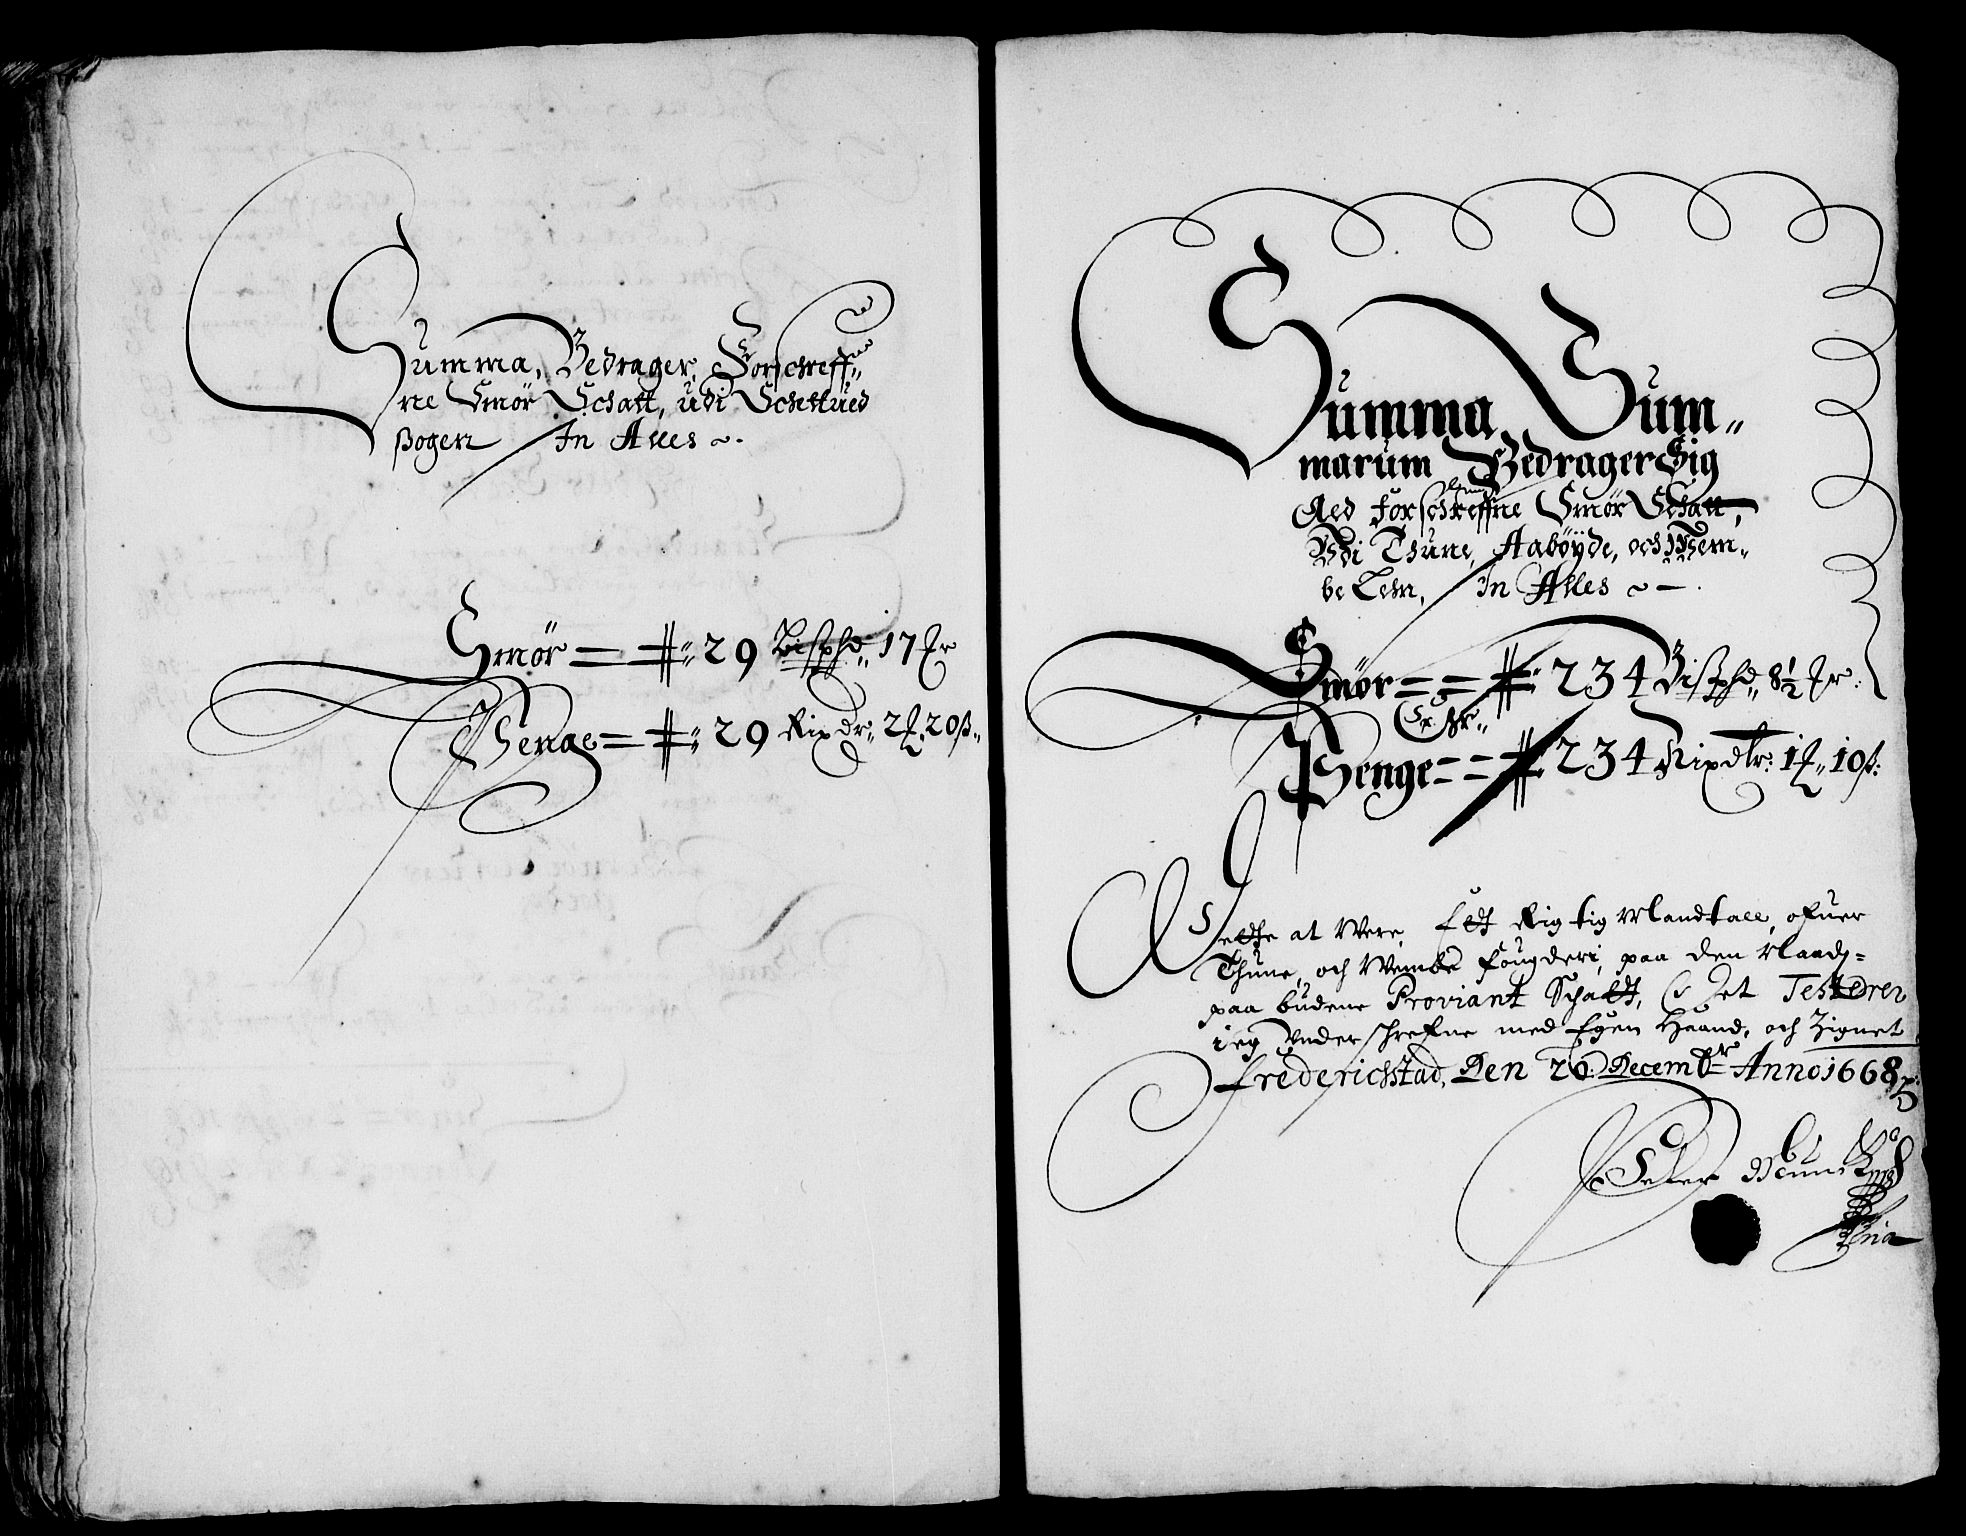 Summa, Bedrager, Forschreff„
ne Smör Schatt, udi Schttued
Sogen In Alles ~.
Smör = #: 29 Bisphd„ 17 Mr
Penge = #: 29 Rixdr: 2 ℳ 20 ß„
Summa Sum„
marum Bedrager Sig
Aed Forschreffne Smör Schatt,
Udi Thune, Aaböyde, och Wem„
be Lehn, In Alles ~ —.
Smör = = # 234 Bispd„ 8½ Mr:
Er Er„
Penge = = # 234 Rixdlr: 1 ℳ„ 10 ß:
Dette at Were Ett Rigtig Mandtall, ofuer
Thune, och Wembe fougderi, paa den
paa budene Proviant Schatt, Er Jet Testerer
ieg Underschrefne med Egen Haand, och Zignet
Frederichstad, Den 20 Decembr Anno 1668
Peder Munck